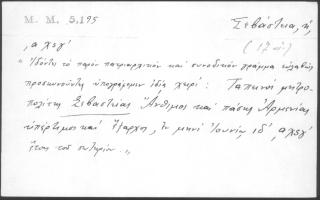 M. M. 5,195
Σεβάστεια, ἡ,
(17 αἰ)
͵αχξγ'
"Ἰδόντες τὸ παρὸν πατριαρχικὸν καὶ συνοδικὸν γράμμα εὐλαβῶς
προσκυνοῦντες ὑπεγράψαμεν ἰδίᾳ χειρί: Ταπεινοὶ μητρο-
πολίτης Σεβαστείας Ἄνθιμος καὶ πάσης Ἀρμενίας
ὑπέρτιμος καὶ ἔξαρχος, ἐν μηνὶ Ἰουνίῳ ιδ', ͵αχξγ'
ἔτους τοῦ σωτηρίου."